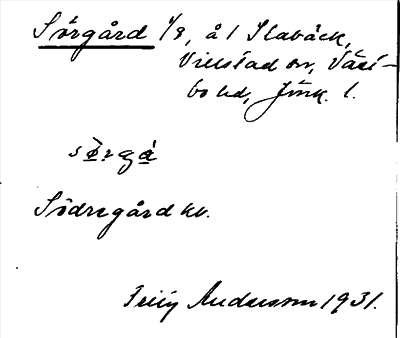 Sörgård 1/8, å 1 Slabäck,
Villstad sn, Västbo hd, Jönk. l.
sö̀rgǻ
Södregård kv.
Andersson 1931.